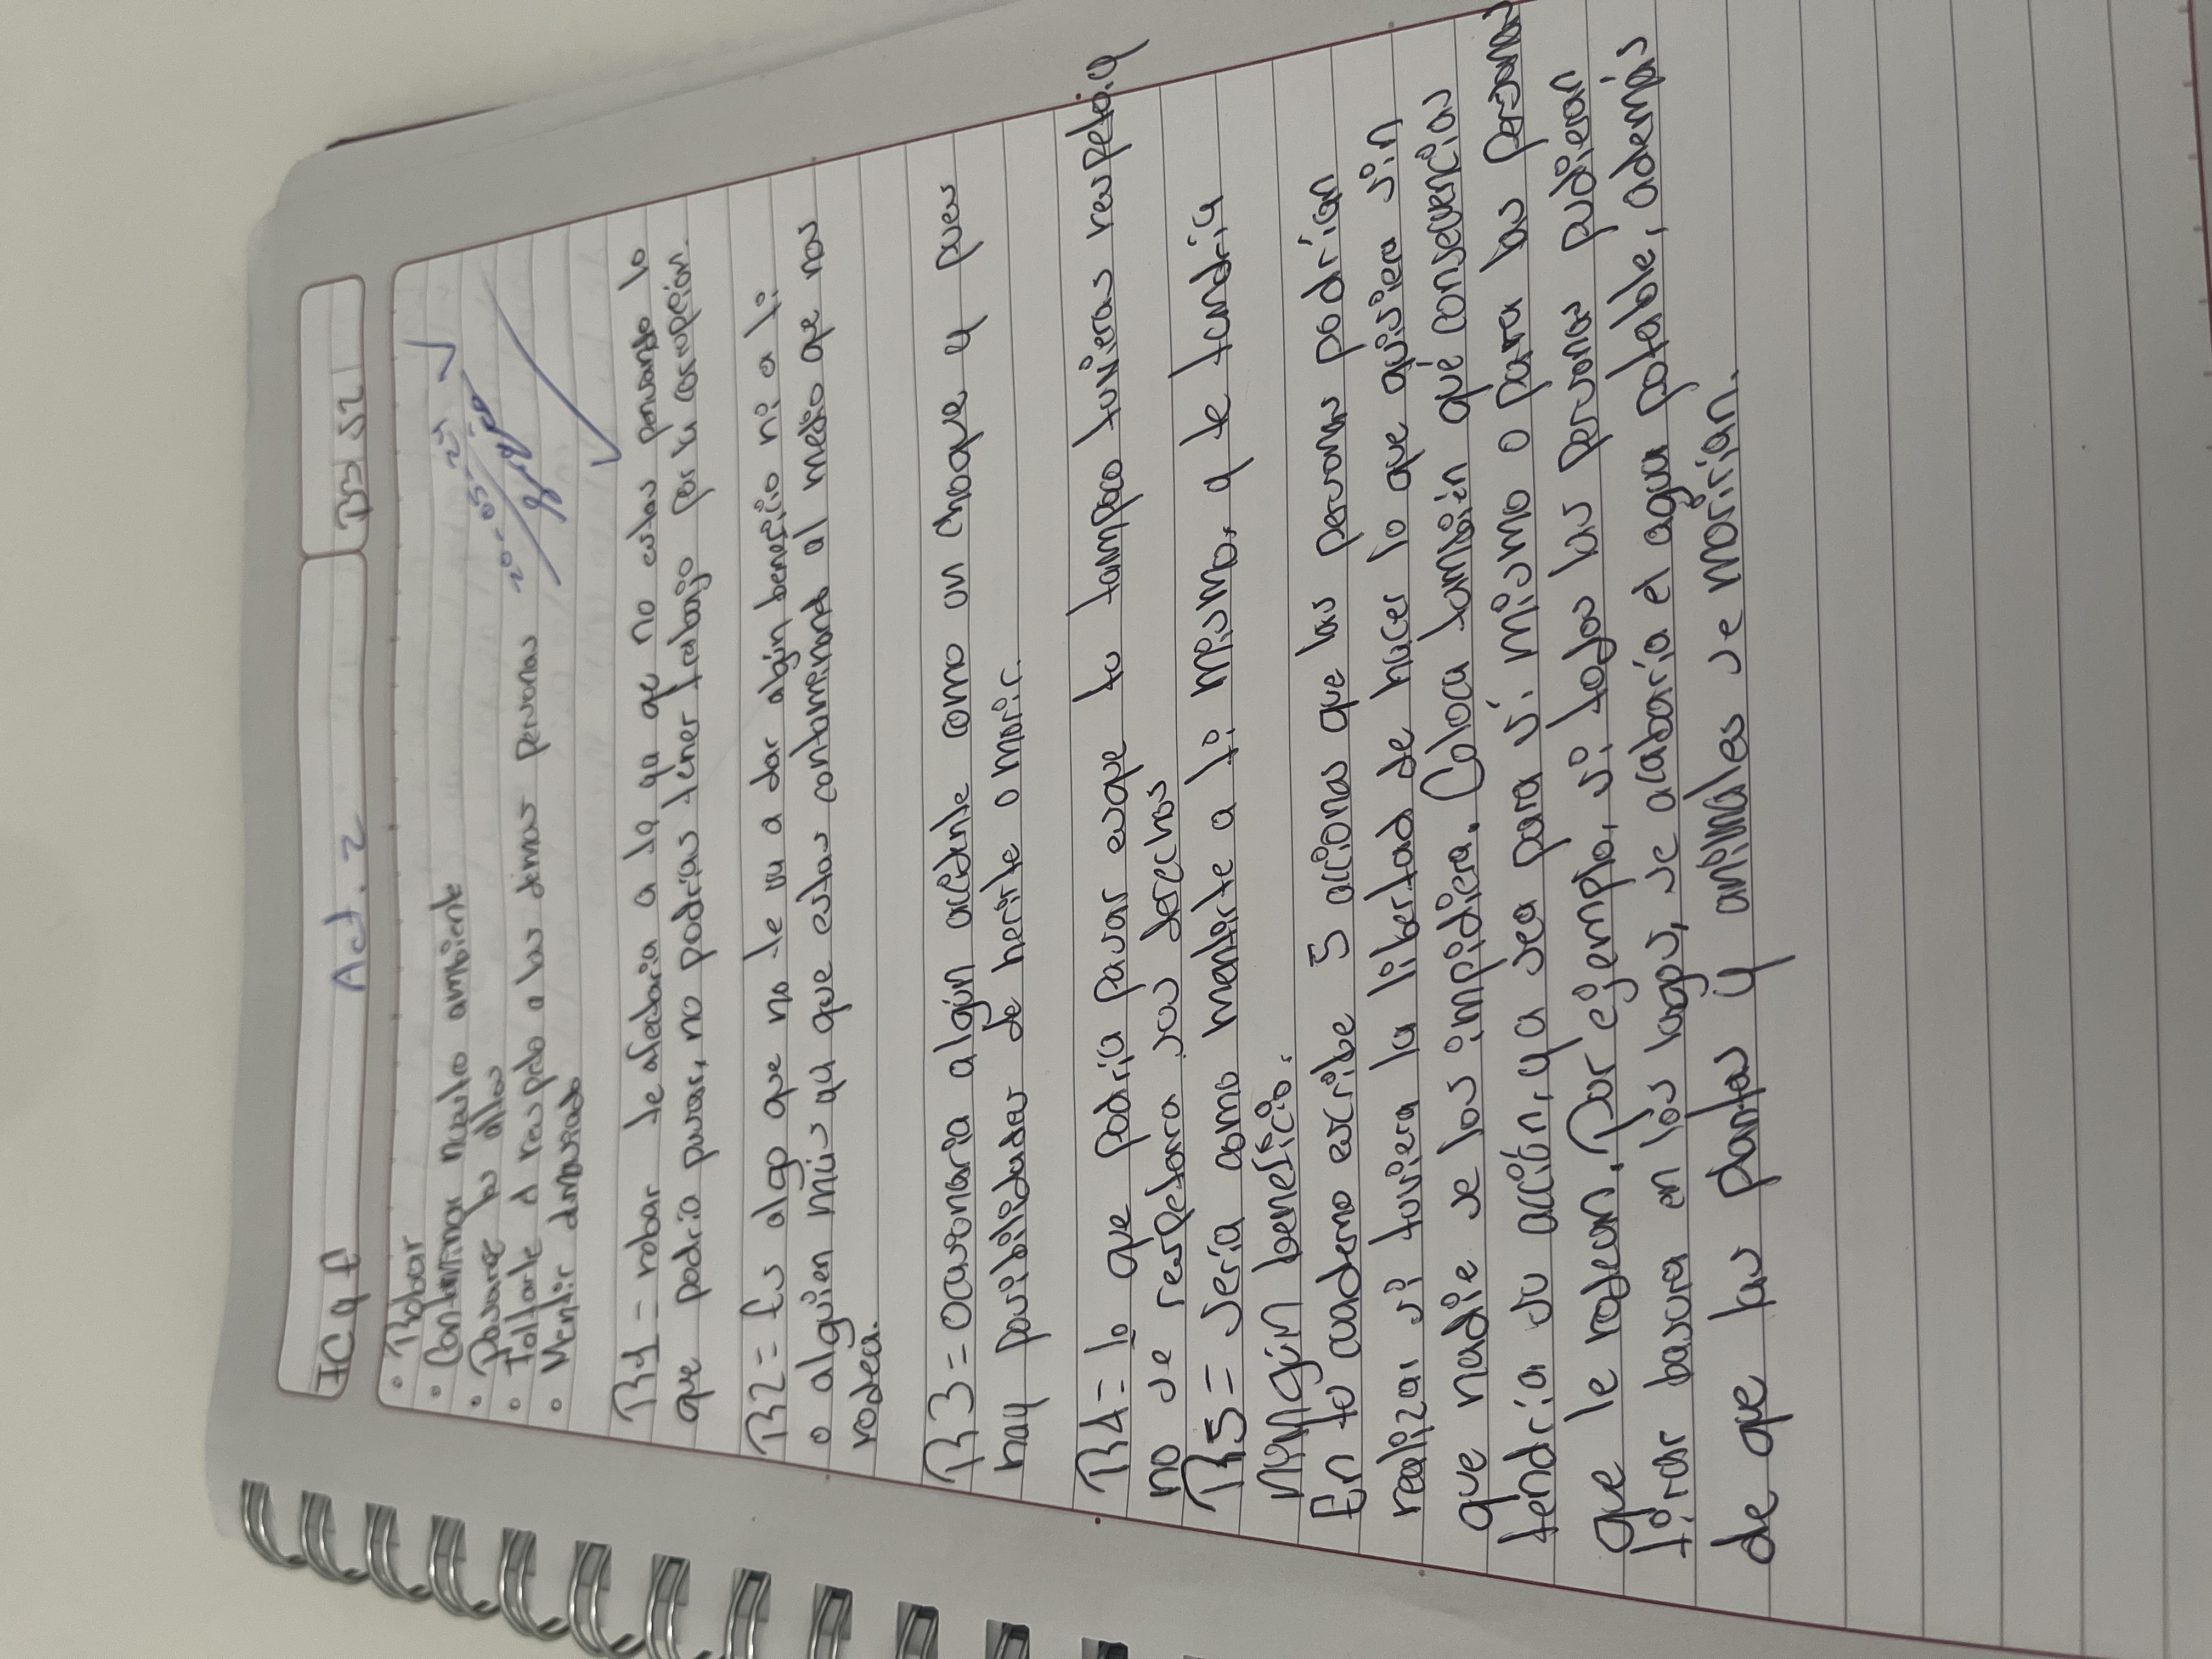 IC y A
Act. 2
B3 S2
• Robar
20-05-24
• Contaminar nuestro ambiente
• Pasarse los altos
• Faltarle el respeto a las demas personas
• Mentir demasiado
R1 = robar te afectaria a ta ya que no estas pensando lo
que podria pasar, no podrías tener trabajo por la corrupción.
R2 = Es algo que no te va a dar algún beneficio ni a ti
o alguien más ya que estas contaminando al medio que nos
rodea.
R3 = ocasionaria algún accidente como un choque y pues
hay posibilidades de herirte o morir.
R4 = lo que podria pasar esque tu tampoco tuvieras respeto y
no se respetara sus derechos
R5 = seria como mentirte a ti mismo, y te tendria
ningún beneficio.
En tu cuaderno escribe 5 acciones que las personas podrían
realizar si tuviera la libertad de hacer lo que quisiera sin
que nadie se los impidiera. Coloca también qué consecuencias
tendría su acción, ya sea para sí mismo o para las personas
que le rodean. Por ejemplo, si todas las personas pudieran
tirar basura en los lagos, se acabaría el agua potable, además
de que las plantas y animales se morirían.